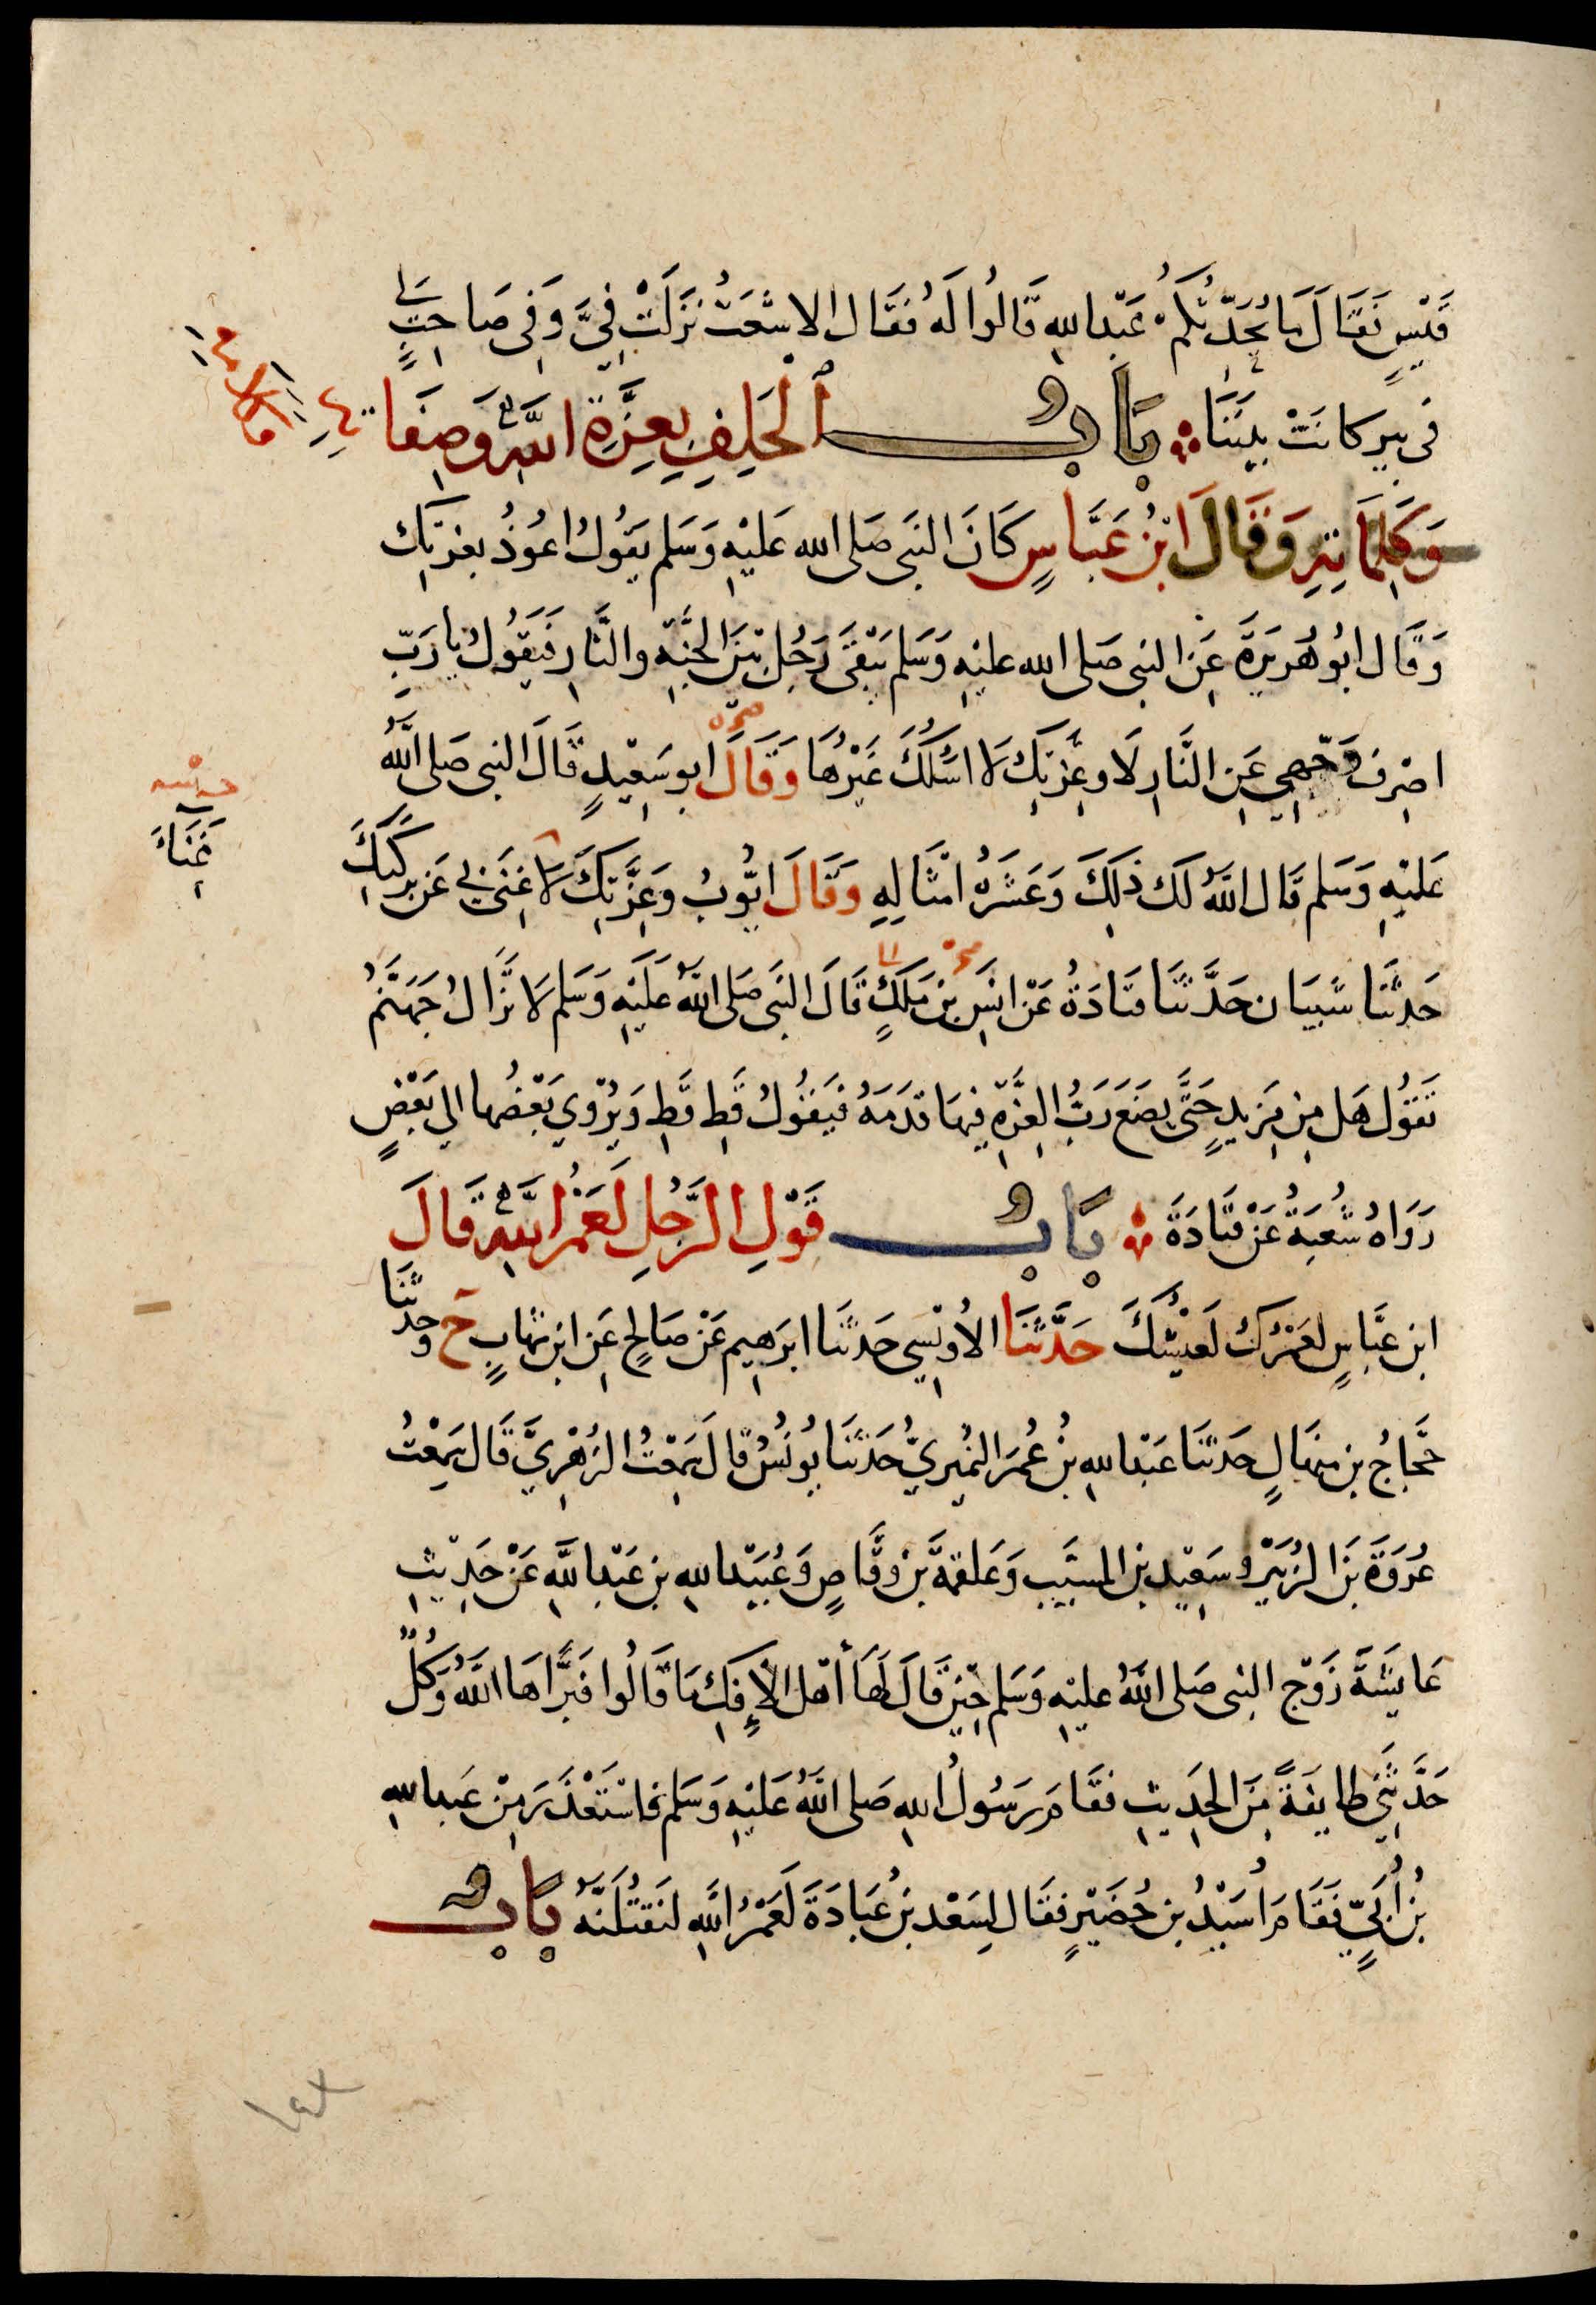 قَيْسٍ فَقَالَ مَا يُحَدِّثُكُمْ عَبْدُ اللهِ قَالُوا لَهُ فَقَالَ الاشْعَثُ نَزَلَتْ فِيَّ وَفِي صَاحِبٍ لِي
فى بيرٍ كانَتْ بَيْنَنَا بَابُ الْحَلِفِ بِعِزَّةِ اللَّهِ وَصِفَاتِهِ
وَكَلِمَاتِهِ وَقَالَ ابْنُ عَبَّاسٍ كَانَ النَّبِي صَلى الله عَلَيْهِ وَسَلم يَقُولُ اعُوذُ بعِزَّتِكَ
وَقَال ابُو هُرَيرَةَ عَنِ النبي صَلى الله عليْهِ وَسَلم يَبْقَى رَجُلٌ بَيْنَ الجَنَّةِ والنَّارِ فَيَقُولُ يا رَبِّ
اصْرِف وَجْهِي عَنِ النَّارِ لَا وعِزَّتِكَ لَا اسْئَلُكَ غَيْرَهَا وَقَالَ ابو سَعِيْدٍ قَالَ النبي صَلى اللَّهُ
عَلَيْهِ وَسَلم قَال اللَّهُ لَكَ ذلِكَ وَعَشَرَةُ امْثَالِهِ وَقَالَ ايُّوبُ وَعِزَّتِكَ لَا غِنَى بِي عَن بَرَكَتِكَ
غَنَاءَ
حَدثنَا شَيبَان حَدَّثنَا قتَادَةُ عَنْ انَسِ بنِ مَلِكٍ قَالَ النَّبِي صَلى اللهُ عَلَيْهِ وَسَلم لَا تزَالُ جَهَنَّمُ
تَقُولُ هَل مِن مَزِيدٍ حَتَّى يَضَعَ رَبُّ العِزَّةِ فِيهَا قدَمَهُ فَيَقُولُ قَطِ قَطِ وَيُزْوَي بَعْضُها الي بَعْضٍ
رَوَاهُ شُعْبَةُ عَنْ قتَادَةَ بَابُ قَوْلِ الرَّجُلِ لَعَمْرُ اللَّهِ قَالَ
ابن عَبَّاسٍ لَعَمْرُكَ لَعَيْشُكَ حَدَّثنَا الأُوَيْسِي حَدثنَا ابرَهِيم عَنْ صَالحٍ عَنِ ابن شهَابٍ ح وحَدثنَا
حَجَّاجُ بن مِنهَالٍ حَدثنَا عَبْدُ اللهِ بنُ عُمَرَ النُّمَيرِيُّ حَدثنَا يُونُسُ قَالَ سَمِعْتُ الزُّهْرِيَّ قَال سَمِعْتُ
عُرْوَةَ بنَ الزُّبَيْرِ وسَعِيْد بن المسَيَّب وَعَلقمَةَ بن وَقَّاصٍ وَعُبَيْدَ اللهِ بن عَبْدِ اللَّهِ عَنْ حَدِيْثِ
عَايشَةَ زَوْجِ النبي صَلى اللهُ عليْهِ وَسَلم حِيْنَ قَالَ لَهَا أَهْل الإِفكِ مَا قَالُوا فَبَرَّاهَا اللَّهُ وَكُلٌّ
حَدَّثَنِي طَايفَةً مِنَ الحَدِيثِ فقَامَ رَسُولُ اللهِ صَلى اللَّهُ عَلَيْهِ وَسَلم فاسْتَعْذَرَ مِنْ عَبدِ اللهِ
بْنِ أُبَيٍّ فَقَامَ أُسَيْدُ بن حُضَيْرٍ فقَال لِسَعْد بنِ عُبَادَةَ لَعَمْرُ اللَّهِ لنَقتُلَنَّهُ بَابُ